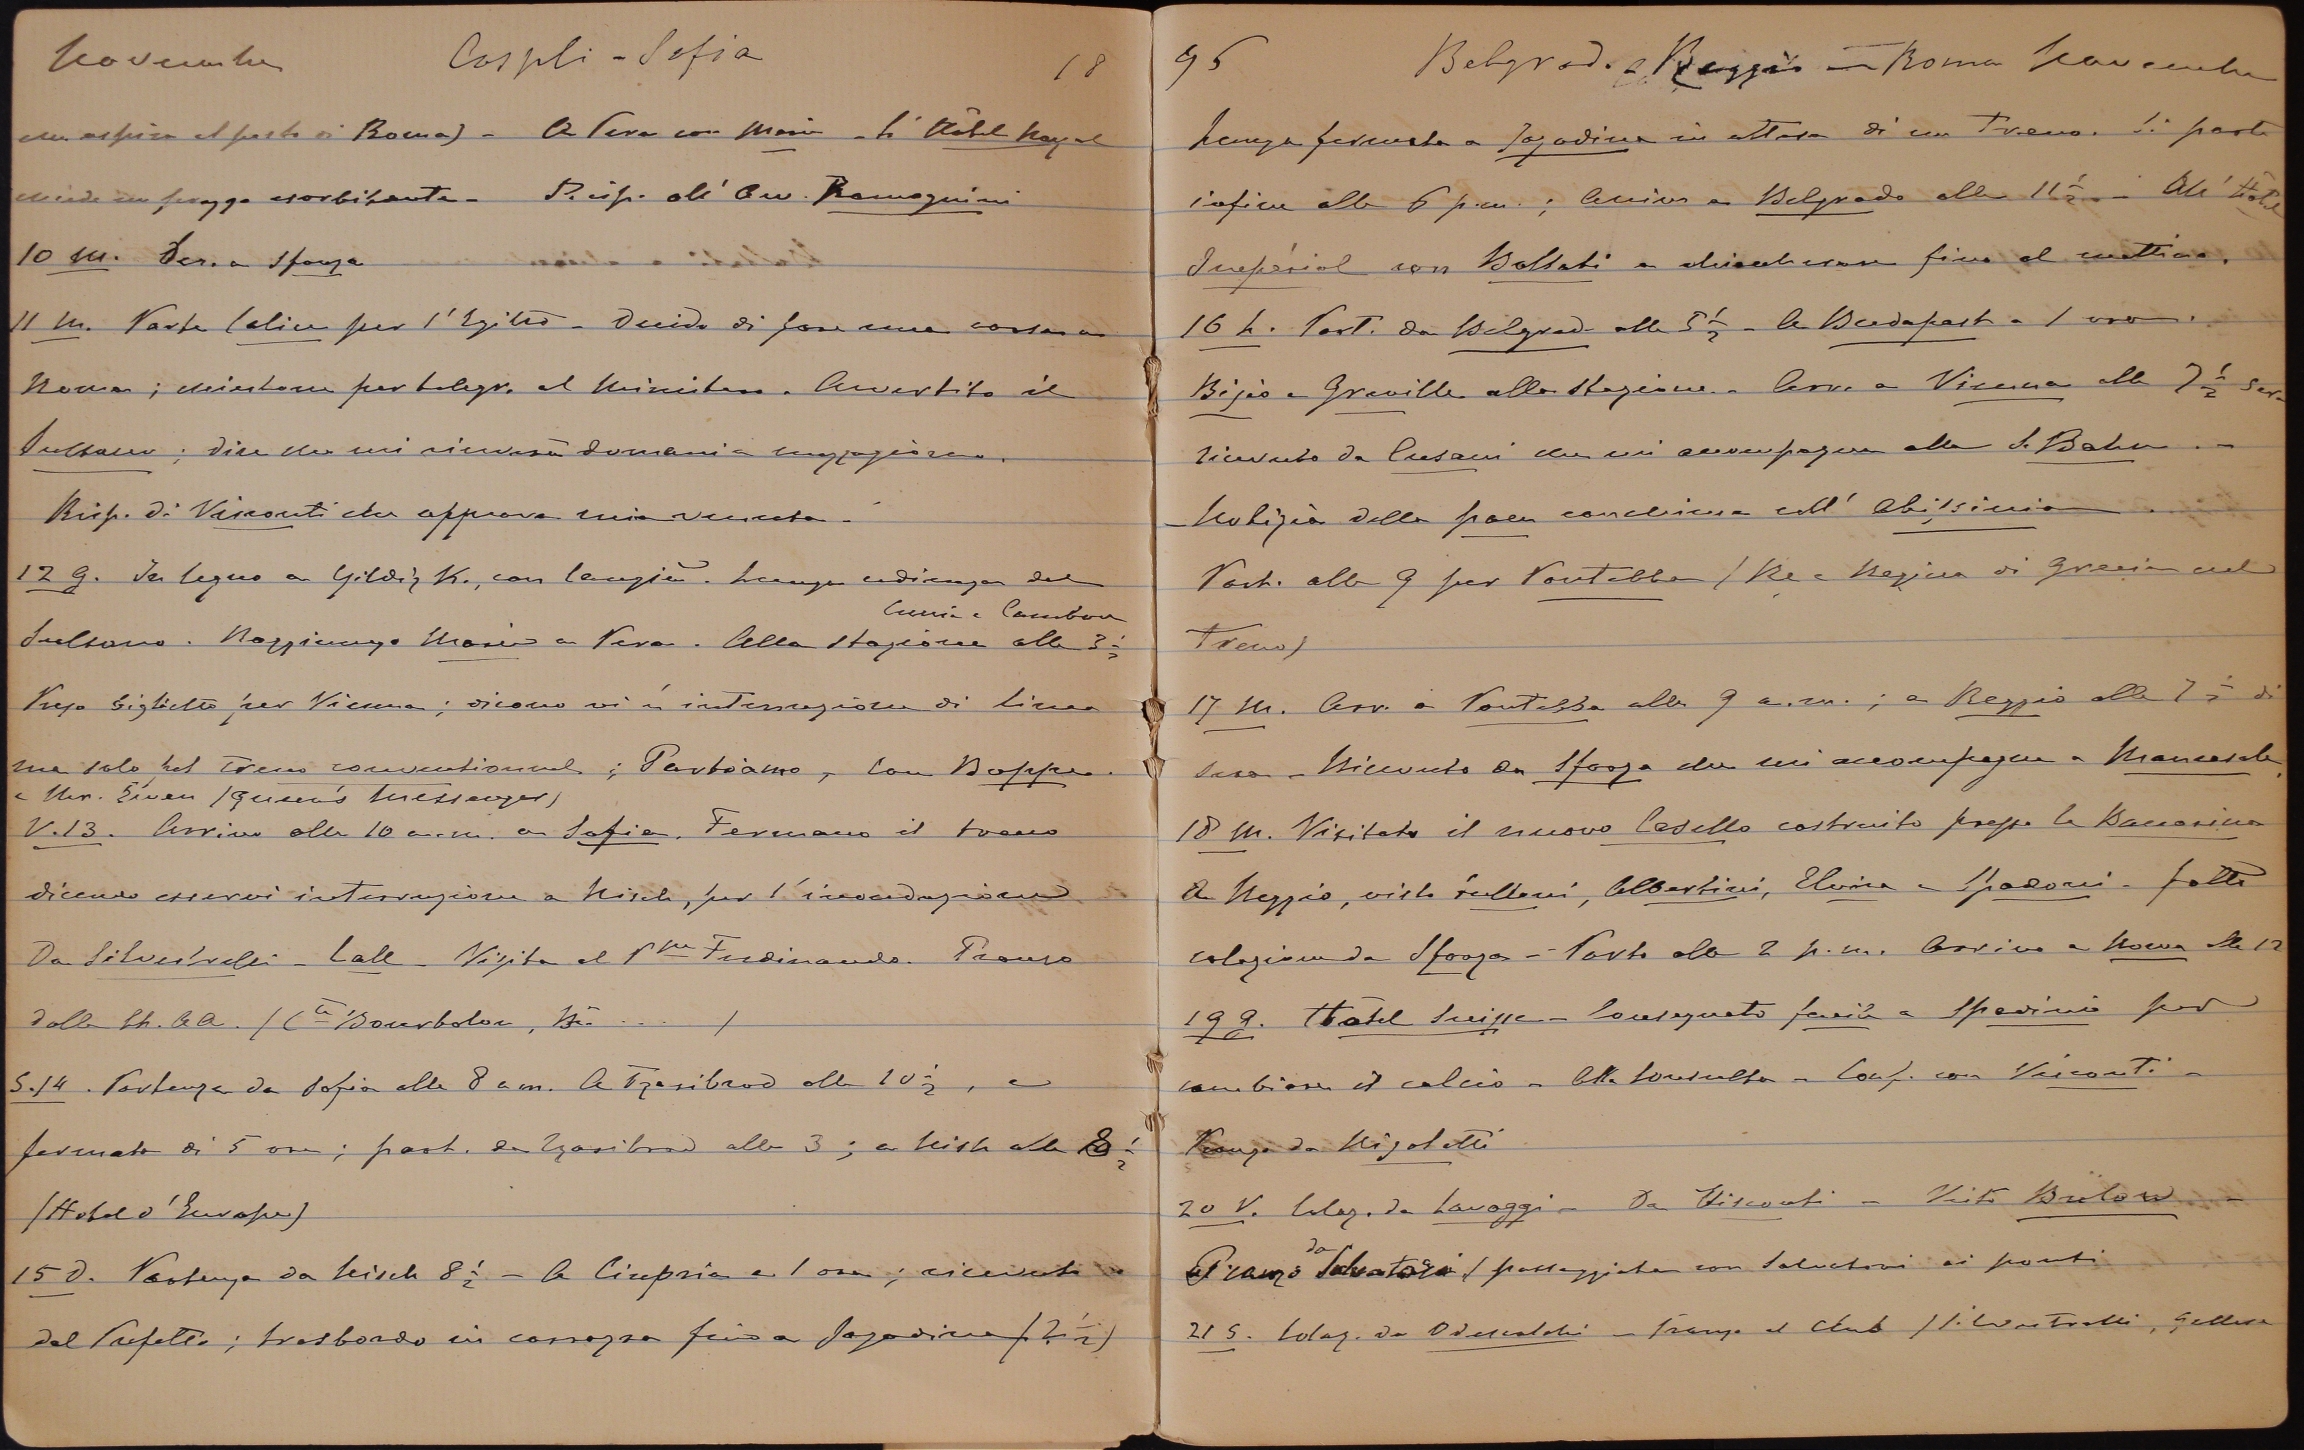 Novembre Cospli - Sofia 18
che aspira al posto di Roma) - A Pera con Maria - L'Hôtel Royal
chiede un prezzo esorbitante - Risp. all' Avv. Romagnini
10 M. Scr. a Sforza
11 M. Parte Calice per l'Egitto - Decido di fare una corsa a
Roma; chiestone per telegr. al Ministero. Avvertito il
Sultano; dice che mi riceverà domani a mezzogiorno.
Risp. di Visconti che approva mia venuta -
12 G. In legno a Yildiz K., con Cangià. Lunga udienza del
Cambon
Sultano. Raggiungo Maria a Pera. Alla stazione alle 3 1/2
Preso biglietto per Vienna; dicono vi è interruzione di linea
ma solo pel treno conventionnel; Partiamo, con Boppe
e Mr. Ewen (Queen's Messenger)
V. 13. Arrivo alle 10 a.m. a Sofia. Fermano il treno
dicendo esservi interruzione a Nisch, per l'inondazione
Da Silvestrelli - Call - Visita al Pcipe Ferdinando. Pranzo
dalle LL. AA. (Cte Bourboulon, Bn .... )
S. 14. Partenza da Sofia alle 8 a.m. A Tzaribrod alle 10 1/2, e
fermata di 5 ore; part. da Tzaribrod alle 3; a Nish alle 8 1/2
(Hotel d'Europe)
15 D. Partenza da Nisch 8 1/2 - A Ciupria a 1 ora; ricevuto
dal Prefetto; trasbordo in carrozza fino a Jagodina (2 1/2)
96 Belgrado - Reggio - Roma Novembre
Lunga fermata a Jagodina in attesa di un treno. Si parte
infine alle 6 p.m.; Arrivo a Belgrado alle 11 1/2 - All' Hôtel
Impérial con Bollati a chiacchierare fino al mattino.
16 L. Part. da Belgrado alle 5 1/2 - A Budapest a 1 ora.
Bijio e Greville alla stazione - Arr. a Vienna alle 7 1/2 sera
ricevuto da Cusani che mi accompagna alla S. Bahn. -
- Notizia della pace conchiusa coll' Abissinia
Part. alle 9 per Pontebba (Re e Regina di Grecia nel
treno)
17 M. Arr. a Pontebba alle 9 a.m.; a Reggio alle 7 1/2 di
sera - Ricevuto da Sforza che mi accompagna a Mancasale
18 M. Visitato il nuovo Casello costruito presso la
A Reggio, visto Sulleni, Albertini, Elvira e Spadoni - fatto
colazione da Sforza - Parto alle 2 p.m. Arrivo a Roma alle 12
19 G. Hôtel Suisse - Consegnato fucile a Spadini per
cambiare il calcio - Alla Consulta - Conf. con Visconti -
Pranzo da Rigoletti
20 V. Colaz. da Lavaggi - Da Visconti - Visto Bülow -
Pranzo da Salvatori (passeggiata con Salvatori ai ponti
21 S. Colaz. da Odescalchi - Pranzo al Club (Silvestrelli, Gallese